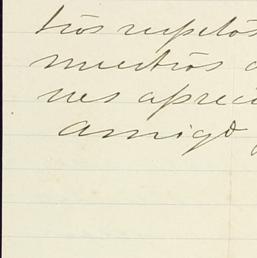 tros respetos
nuestros a
nes apreci
amigo